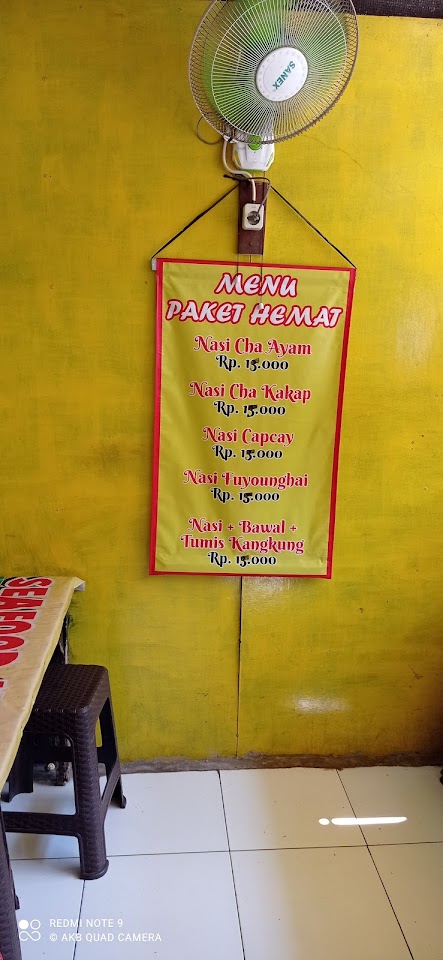 SANEX
MENU
PAKET HEMAT
Nasi Cha Ayam
Rp. 15.000
Nasi Cha Kakap
Rp. 15.000
Nasi Capcay
Rp. 15.000
Nasi Fuyounghai
Rp. 15.000
Nasi + Bawal +
Tumis Kangkung
Rp. 15.000
SEAFOOD
REDMI NOTE 9
© AKB QUAD CAMERA